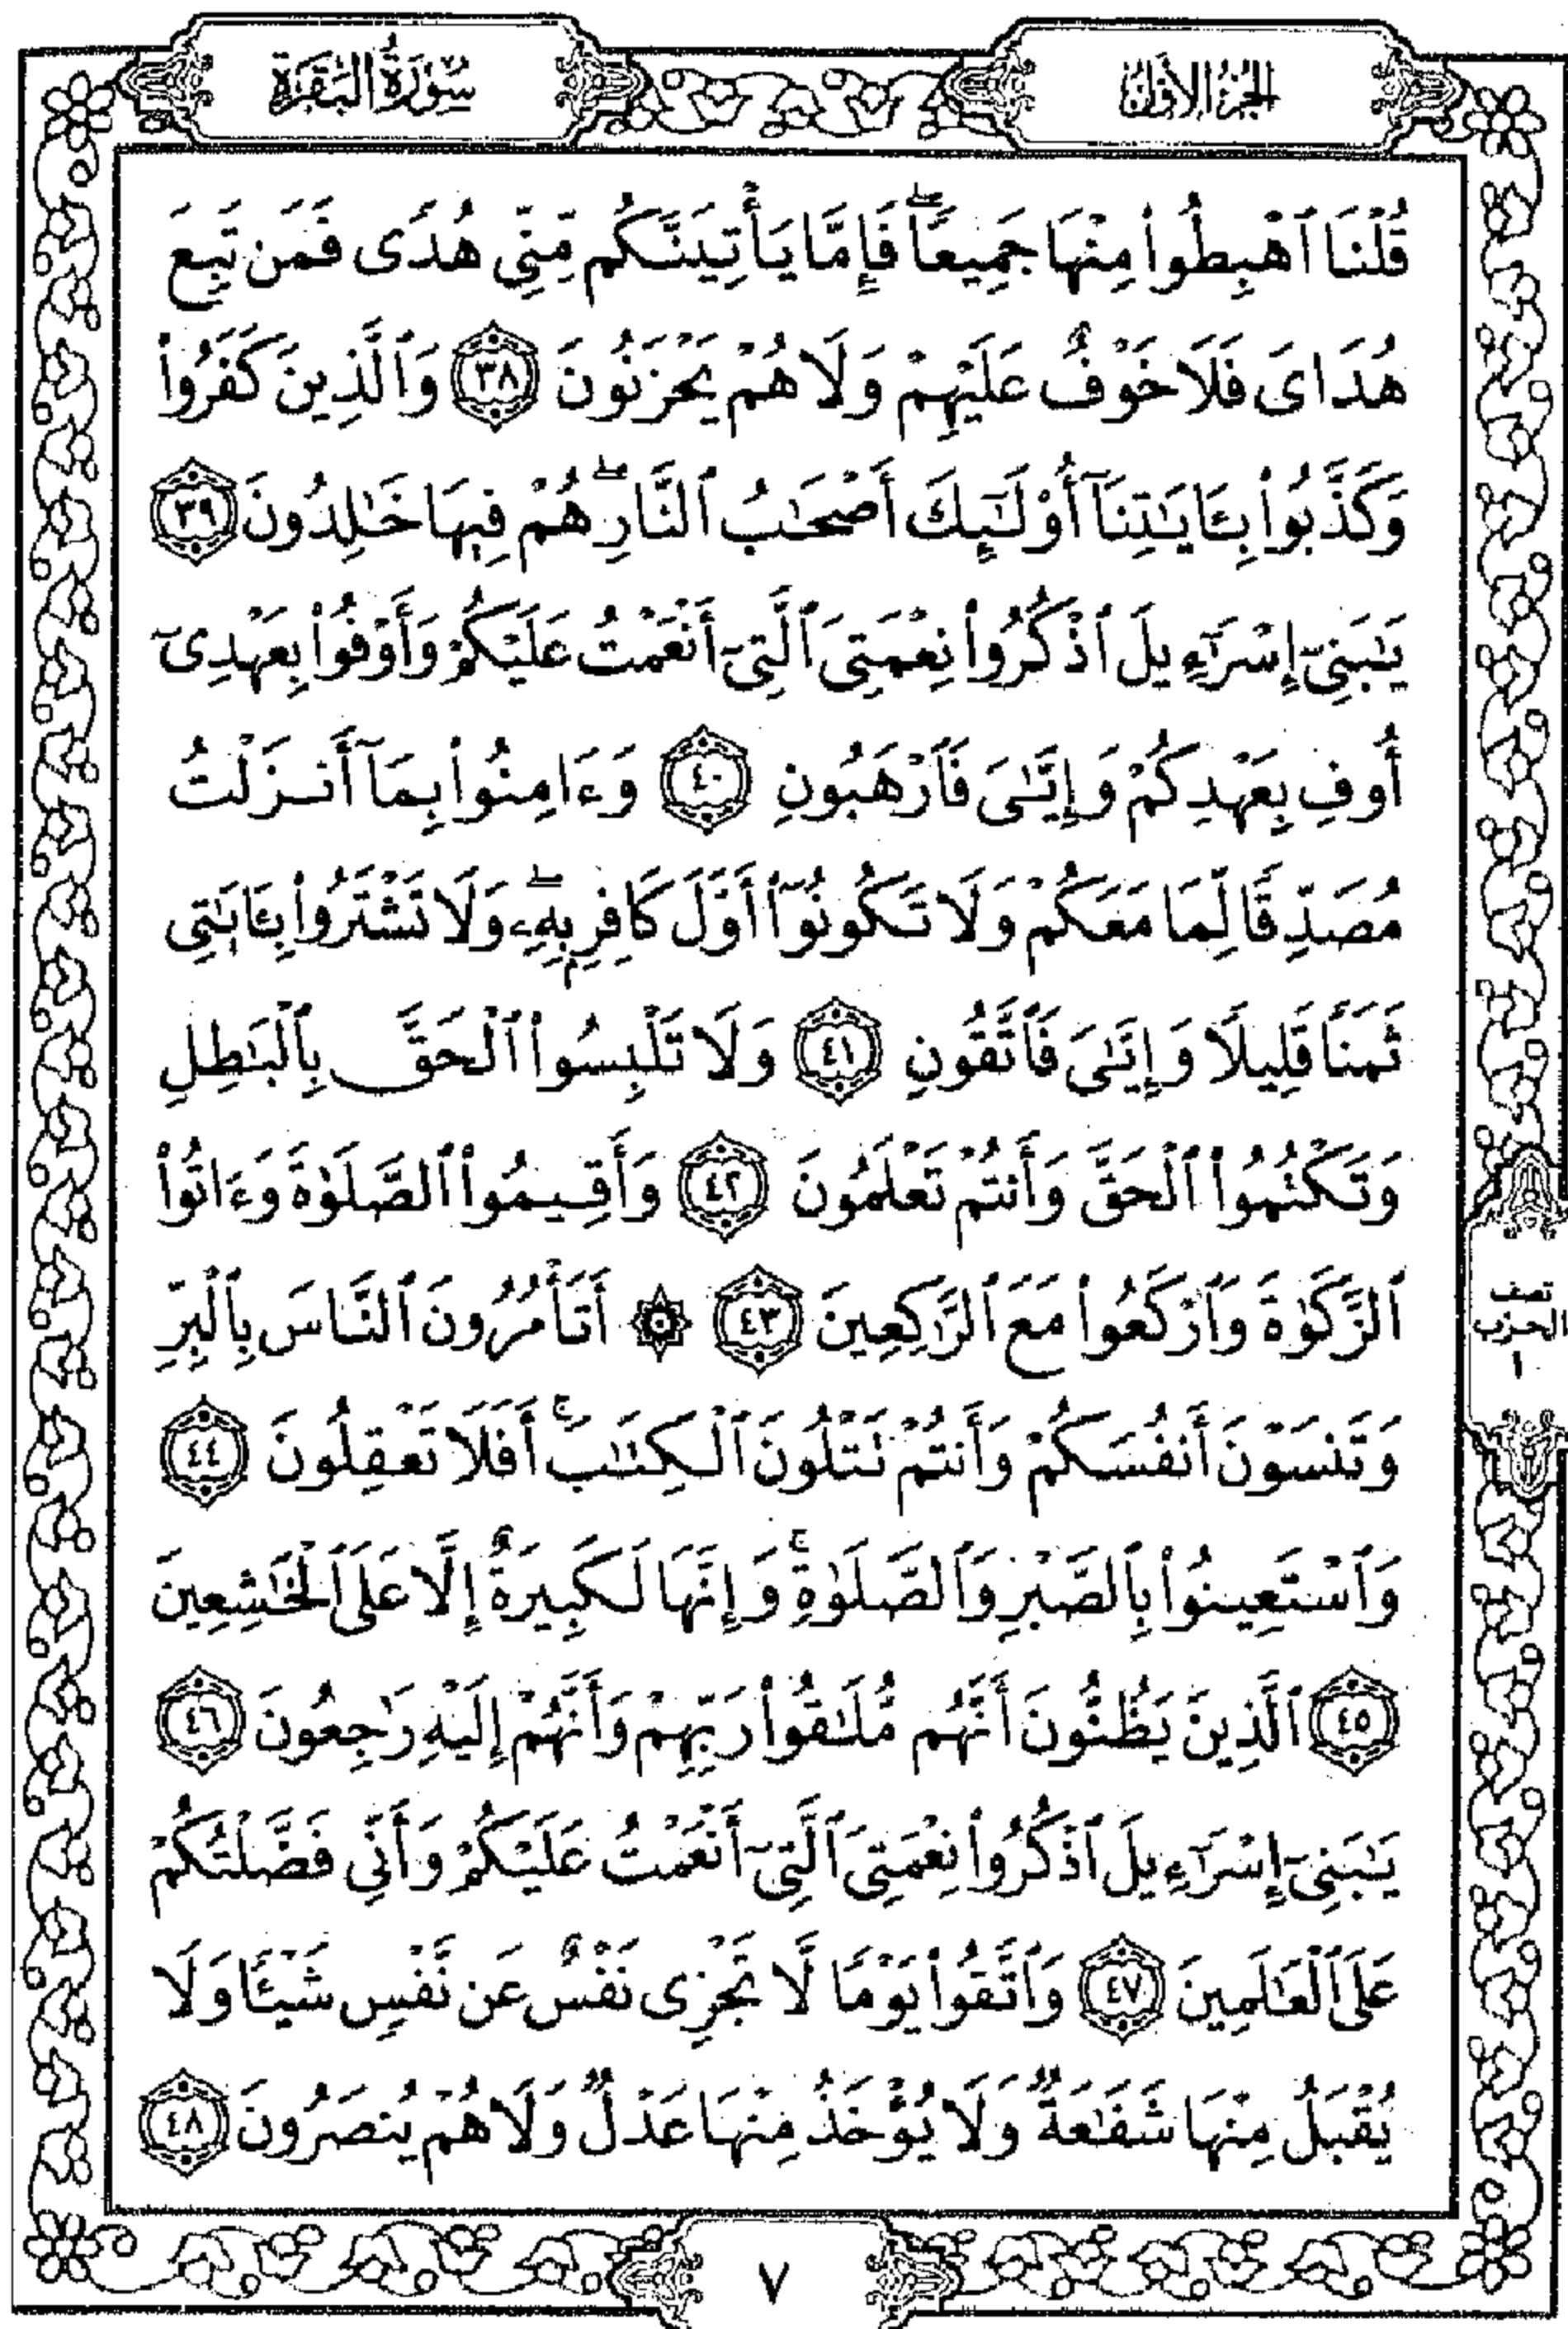 الجزء الأول
سورة البقرة
قُلْنَا ٱهْبِطُوا۟ مِنْهَا جَمِيعًا ۖ فَإِمَّا يَأْتِيَنَّكُم مِّنِّى هُدًى فَمَن تَبِعَ
هُدَاىَ فَلَا خَوْفٌ عَلَيْهِمْ وَلَا هُمْ يَحْزَنُونَ ٣٨ وَٱلَّذِينَ كَفَرُوا۟
وَكَذَّبُوا۟ بِـَٔايَـٰتِنَآ أُو۟لَـٰٓئِكَ أَصْحَـٰبُ ٱلنَّارِ ۖ هُمْ فِيهَا خَـٰلِدُونَ ٣٩
يَـٰبَنِىٓ إِسْرَٰٓءِيلَ ٱذْكُرُوا۟ نِعْمَتِىَ ٱلَّتِىٓ أَنْعَمْتُ عَلَيْكُمْ وَأَوْفُوا۟ بِعَهْدِىٓ
أُوفِ بِعَهْدِكُمْ وَإِيَّـٰىَ فَٱرْهَبُونِ ٤٠ وَءَامِنُوا۟ بِمَآ أَنزَلْتُ
مُصَدِّقًا لِّمَا مَعَكُمْ وَلَا تَكُونُوٓا۟ أَوَّلَ كَافِرٍۭ بِهِۦ ۖ وَلَا تَشْتَرُوا۟ بِـَٔايَـٰتِى
ثَمَنًا قَلِيلًا وَإِيَّـٰىَ فَٱتَّقُونِ ٤١ وَلَا تَلْبِسُوا۟ ٱلْحَقَّ بِٱلْبَـٰطِلِ
وَتَكْتُمُوا۟ ٱلْحَقَّ وَأَنتُمْ تَعْلَمُونَ ٤٢ وَأَقِيمُوا۟ ٱلصَّلَوٰةَ وَءَاتُوا۟
ٱلزَّكَوٰةَ وَٱرْكَعُوا۟ مَعَ ٱلرَّٰكِعِينَ ٤٣ ۞ أَتَأْمُرُونَ ٱلنَّاسَ بِٱلْبِرِّ
وَتَنسَوْنَ أَنفُسَكُمْ وَأَنتُمْ تَتْلُونَ ٱلْكِتَـٰبَ ۚ أَفَلَا تَعْقِلُونَ ٤٤
وَٱسْتَعِينُوا۟ بِٱلصَّبْرِ وَٱلصَّلَوٰةِ ۚ وَإِنَّهَا لَكَبِيرَةٌ إِلَّا عَلَى ٱلْخَـٰشِعِينَ
٤٥ ٱلَّذِينَ يَظُنُّونَ أَنَّهُم مُّلَـٰقُوا۟ رَبِّهِمْ وَأَنَّهُمْ إِلَيْهِ رَٰجِعُونَ ٤٦
يَـٰبَنِىٓ إِسْرَٰٓءِيلَ ٱذْكُرُوا۟ نِعْمَتِىَ ٱلَّتِىٓ أَنْعَمْتُ عَلَيْكُمْ وَأَنِّى فَضَّلْتُكُمْ
عَلَى ٱلْعَـٰلَمِينَ ٤٧ وَٱتَّقُوا۟ يَوْمًا لَّا تَجْزِى نَفْسٌ عَن نَّفْسٍ شَيْـًٔا وَلَا
يُقْبَلُ مِنْهَا شَفَـٰعَةٌ وَلَا يُؤْخَذُ مِنْهَا عَدْلٌ وَلَا هُمْ يُنصَرُونَ ٤٨
نصف
الحزب
١
٧